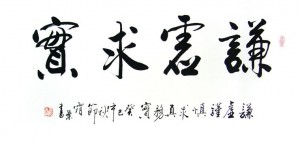 謙虛求實
謙虛謹慎求真務實癸巳中秋節